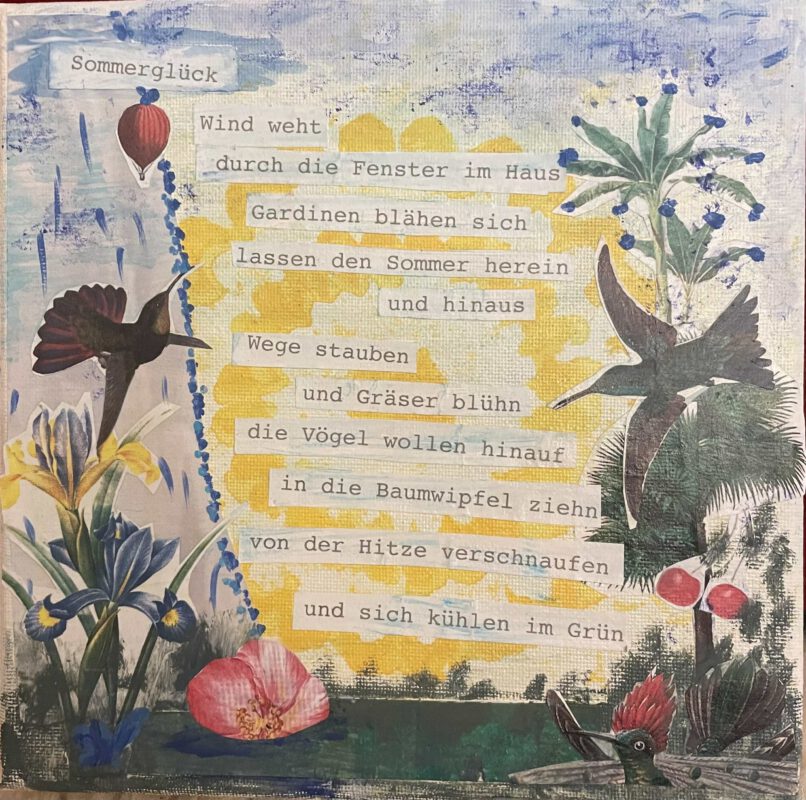 Sommerglück
Wind weht
durch die Fenster im Haus
Gardinen blähen sich
lassen den Sommer herein
und hinaus
Wege stauben
und Gräser blühn
die Vögel wollen hinauf
in die Baumwipfel ziehn
von der Hitze verschnaufen
und sich kühlen im Grün